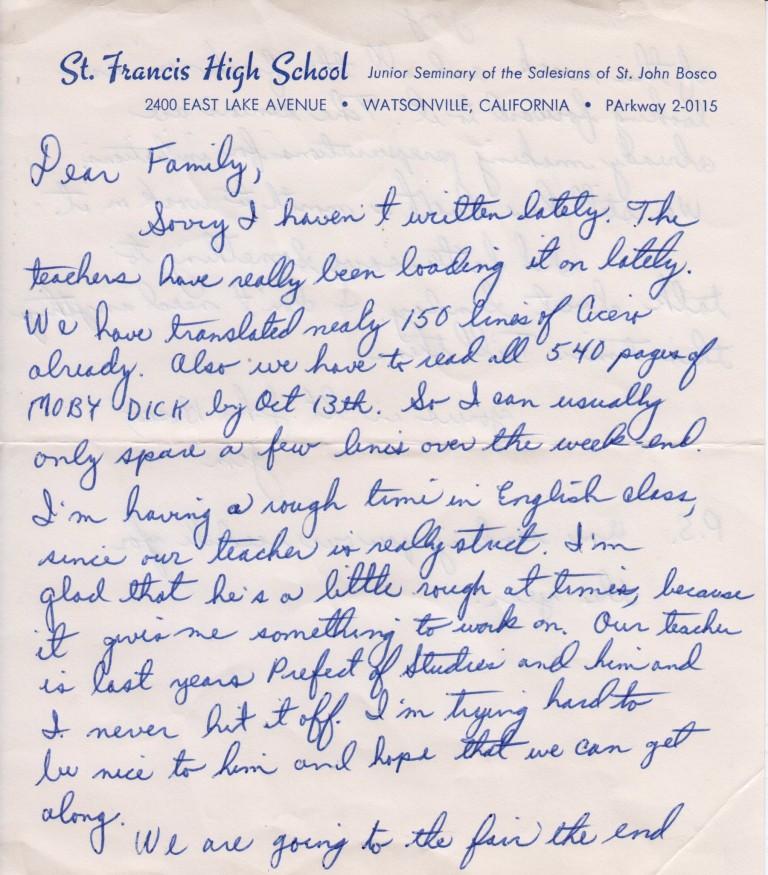 St. Francis High School Junior Seminary of the Salesians of St. John Bosco
2400 EAST LAKE AVENUE • WATSONVILLE, CALIFORNIA • PArkway 2-0115
Dear Family,
Sorry I haven't written lately. The
teachers have really been loading it on lately.
We have translated nealy 150 lines of Cicero
already. Also we have to read all 540 pages of
MOBY DICK by Oct 13th. So I can usually
only spare a few lines over the week-end.
I'm having a rough time in English class,
since our teacher is really strict. I'm
glad that he's a little rough at times, because
it gives me something to work on. Our teacher
is last years Prefect of Studies and him and
I never hit it off. I'm trying hard to
be nice to him and hope that we can get
along.
We are going to the fair the end